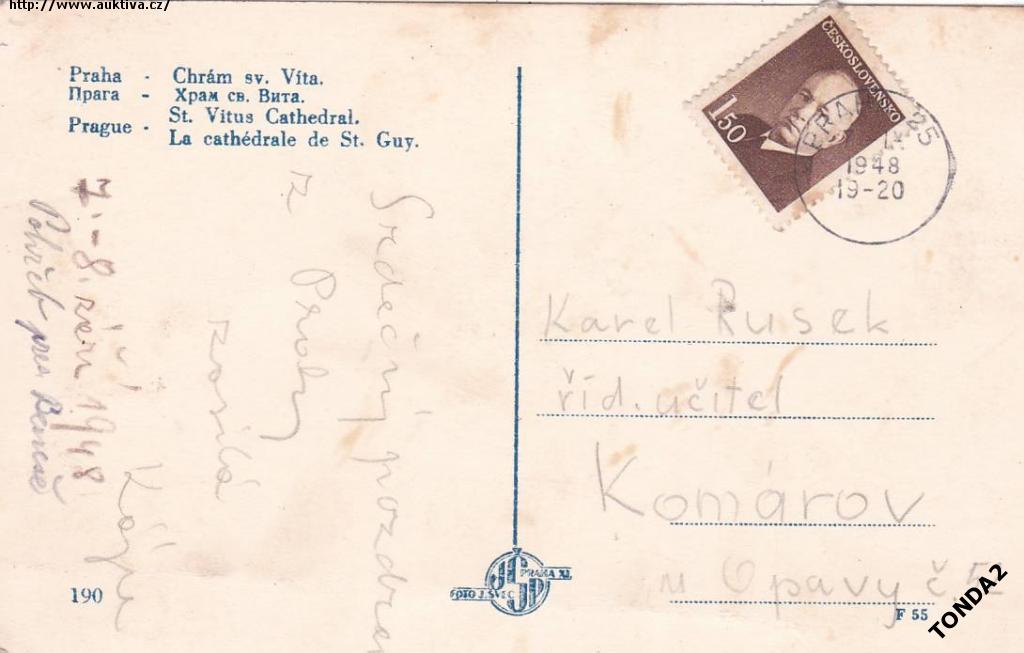 http://www.auktiva.cz/
Praha - Chrám sv. Víta.
Прага - Храм св. Вита.
Prague - St. Vitus Cathedral.
La cathédrale de St. Guy.
ČESKOSLOVENSKO
1.50
PRAHA 25
IX
1948
19-20
Srdečný pozdrav
z Prahy
zasílá
7.-8. září 1948
Pohřeb pres Beneše
Karel Rusek
říd. učitel
Komárov
u Opavy č. 5
190
JŠP
PRAHA XI.
FOTO J. ŠVEC
F 55
TONDA2